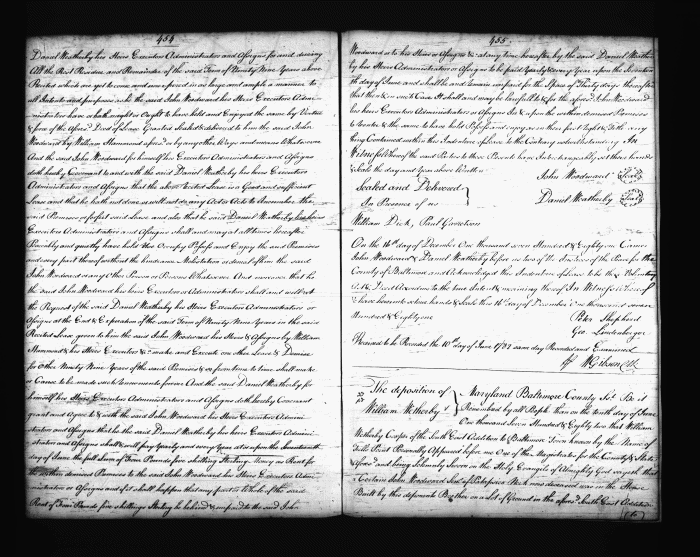 454
Daniel Weatherby his Heirs Executors Administrators and Assigns for and during
All the Rest Residue and Remainder of the said Term of Ninety Nine Years above
Recited which are yet to come and unexpired in as large and ample a manner to
all Intents and purposes as he the said John Woodward his Heirs Executors Admi-
nistrators have or hath might or Ought to have held and Enjoyed the same by Virtue
& force of the Deed of Lease Granted Sealed & delivered to him the said John
Woodward by William Hammond or by any other Ways and means Whatsoever
And the said John Woodward for himself his Executors Administrators and Assigns
doth hereby Covenant to and with the said Daniel Weatherby his heirs Executors
Administrators and Assigns that the above recited Lease is a Good and sufficient
Lease and that he hath not done nor will not do any Act or Acts to Incumber the
said Premises or forfeit said Lease and also that he said Daniel Weatherby his heirs
Executors Administrators and Assigns shall and may at all times hereafter
Peaceably and quietly have hold Use Occupy Possess and Enjoy the said Premises
and every part thereof without the hindrance Molestation or denial of him the said
John Woodward or any Other Person or Persons Whatsoever And moreover that he
the said John Woodward his Heirs Executors Administrators shall and will at
the Request of the said Daniel Weatherby his Heirs Executors Administrators or
Assigns at the End & Expiration of the said Term of Ninety Nine Years in the said
Recited Lease given to him the said John Woodward his Heirs & Assigns by William
Hammond & his Heirs Executors &c make and Execute one other Lease & Demise
for Other Ninety Nine Years of the said Premises & so from time to time shall make
or Cause to be made such renewments forever And the said Daniel Weatherby for
himself his Heirs Executors Administrators and Assigns doth hereby Covenant
grant and Agree to & with the said John Woodward his Heirs Executors Admini-
strators and Assigns that he the said Daniel Weatherby his heirs Executors Admini-
strators and Assigns shall & will pay Yearly and every Year at or upon the Seventeenth
day of June the full Sum of Four Pounds five shillings Sterling Money as Rent for
the within demised Premises to the said John Woodward his Heirs Executors Admi-
nistrators or Assigns and if it shall happen that any part or Whole of the said
Rent of Four Pounds five shillings Sterling be behind & unpaid to the said John
455
Woodward or to his Heirs or Assigns &c at any time hereafter by the said Daniel Weather
by his Heirs Administrators or Assigns to be paid Yearly & every Year upon the Seventeen
th day of June and shall be and remain unpaid for the Space of Thirty days thereafter
that then & in such Case It shall and may be lawful to & for the John Woodward
his heirs Executors Administrators or Assigns In & upon the within demised Premises
to reenter & the same to have hold Possess and enjoy as in their first Right & Title any
thing Contained within this Indenture of Lease to the Contrary notwithstanding In
Witness Whereof the said Parties to these Presents have Interchangeably set their hands
& Seals the day and Year above Written
John Woodward (Seal)
Sealed and Delivered
In Presence of us
Daniel Weatherby (Seal)
William Dick, Paul
On the 16th day of December One thousand seven Hundred & Eighty one Came
John Woodward & Daniel Weatherby before us two of the Justices of the Peace for the
County of Baltimore and Acknowledged this Indenture of Lease to be the Voluntary
Act & Deed According to the true Intent & meaning thereof In Witness Whereof
We have hereunto set our hands & Seals this 16th day of December One thousand seven
Hundred & Eighty one
Peter Shepherd
Geo. Lindenberger
Received to be Recorded the 10th day of June 1782 same day Recorded and Examined
WGibson Clk
The deposition of
William Wetherby
Maryland Baltimore County Sct. Be it
Remembered by all People that on the tenth day of June
One thousand seven Hundred & Eighty two that William
Wetherby Cooper of the South East Addition to Baltimore Town known by the Name of
Fells Point Personally Appeared before me One of the Magistrates for the County & State
and being Solemnly Sworn on the Holy Evangels of Almighty God sayeth that
a Certain John Woodward late of Patapsico Neck now deceased was in the House
Built by this deponents Brother on a Lot of Ground in the South East Addition